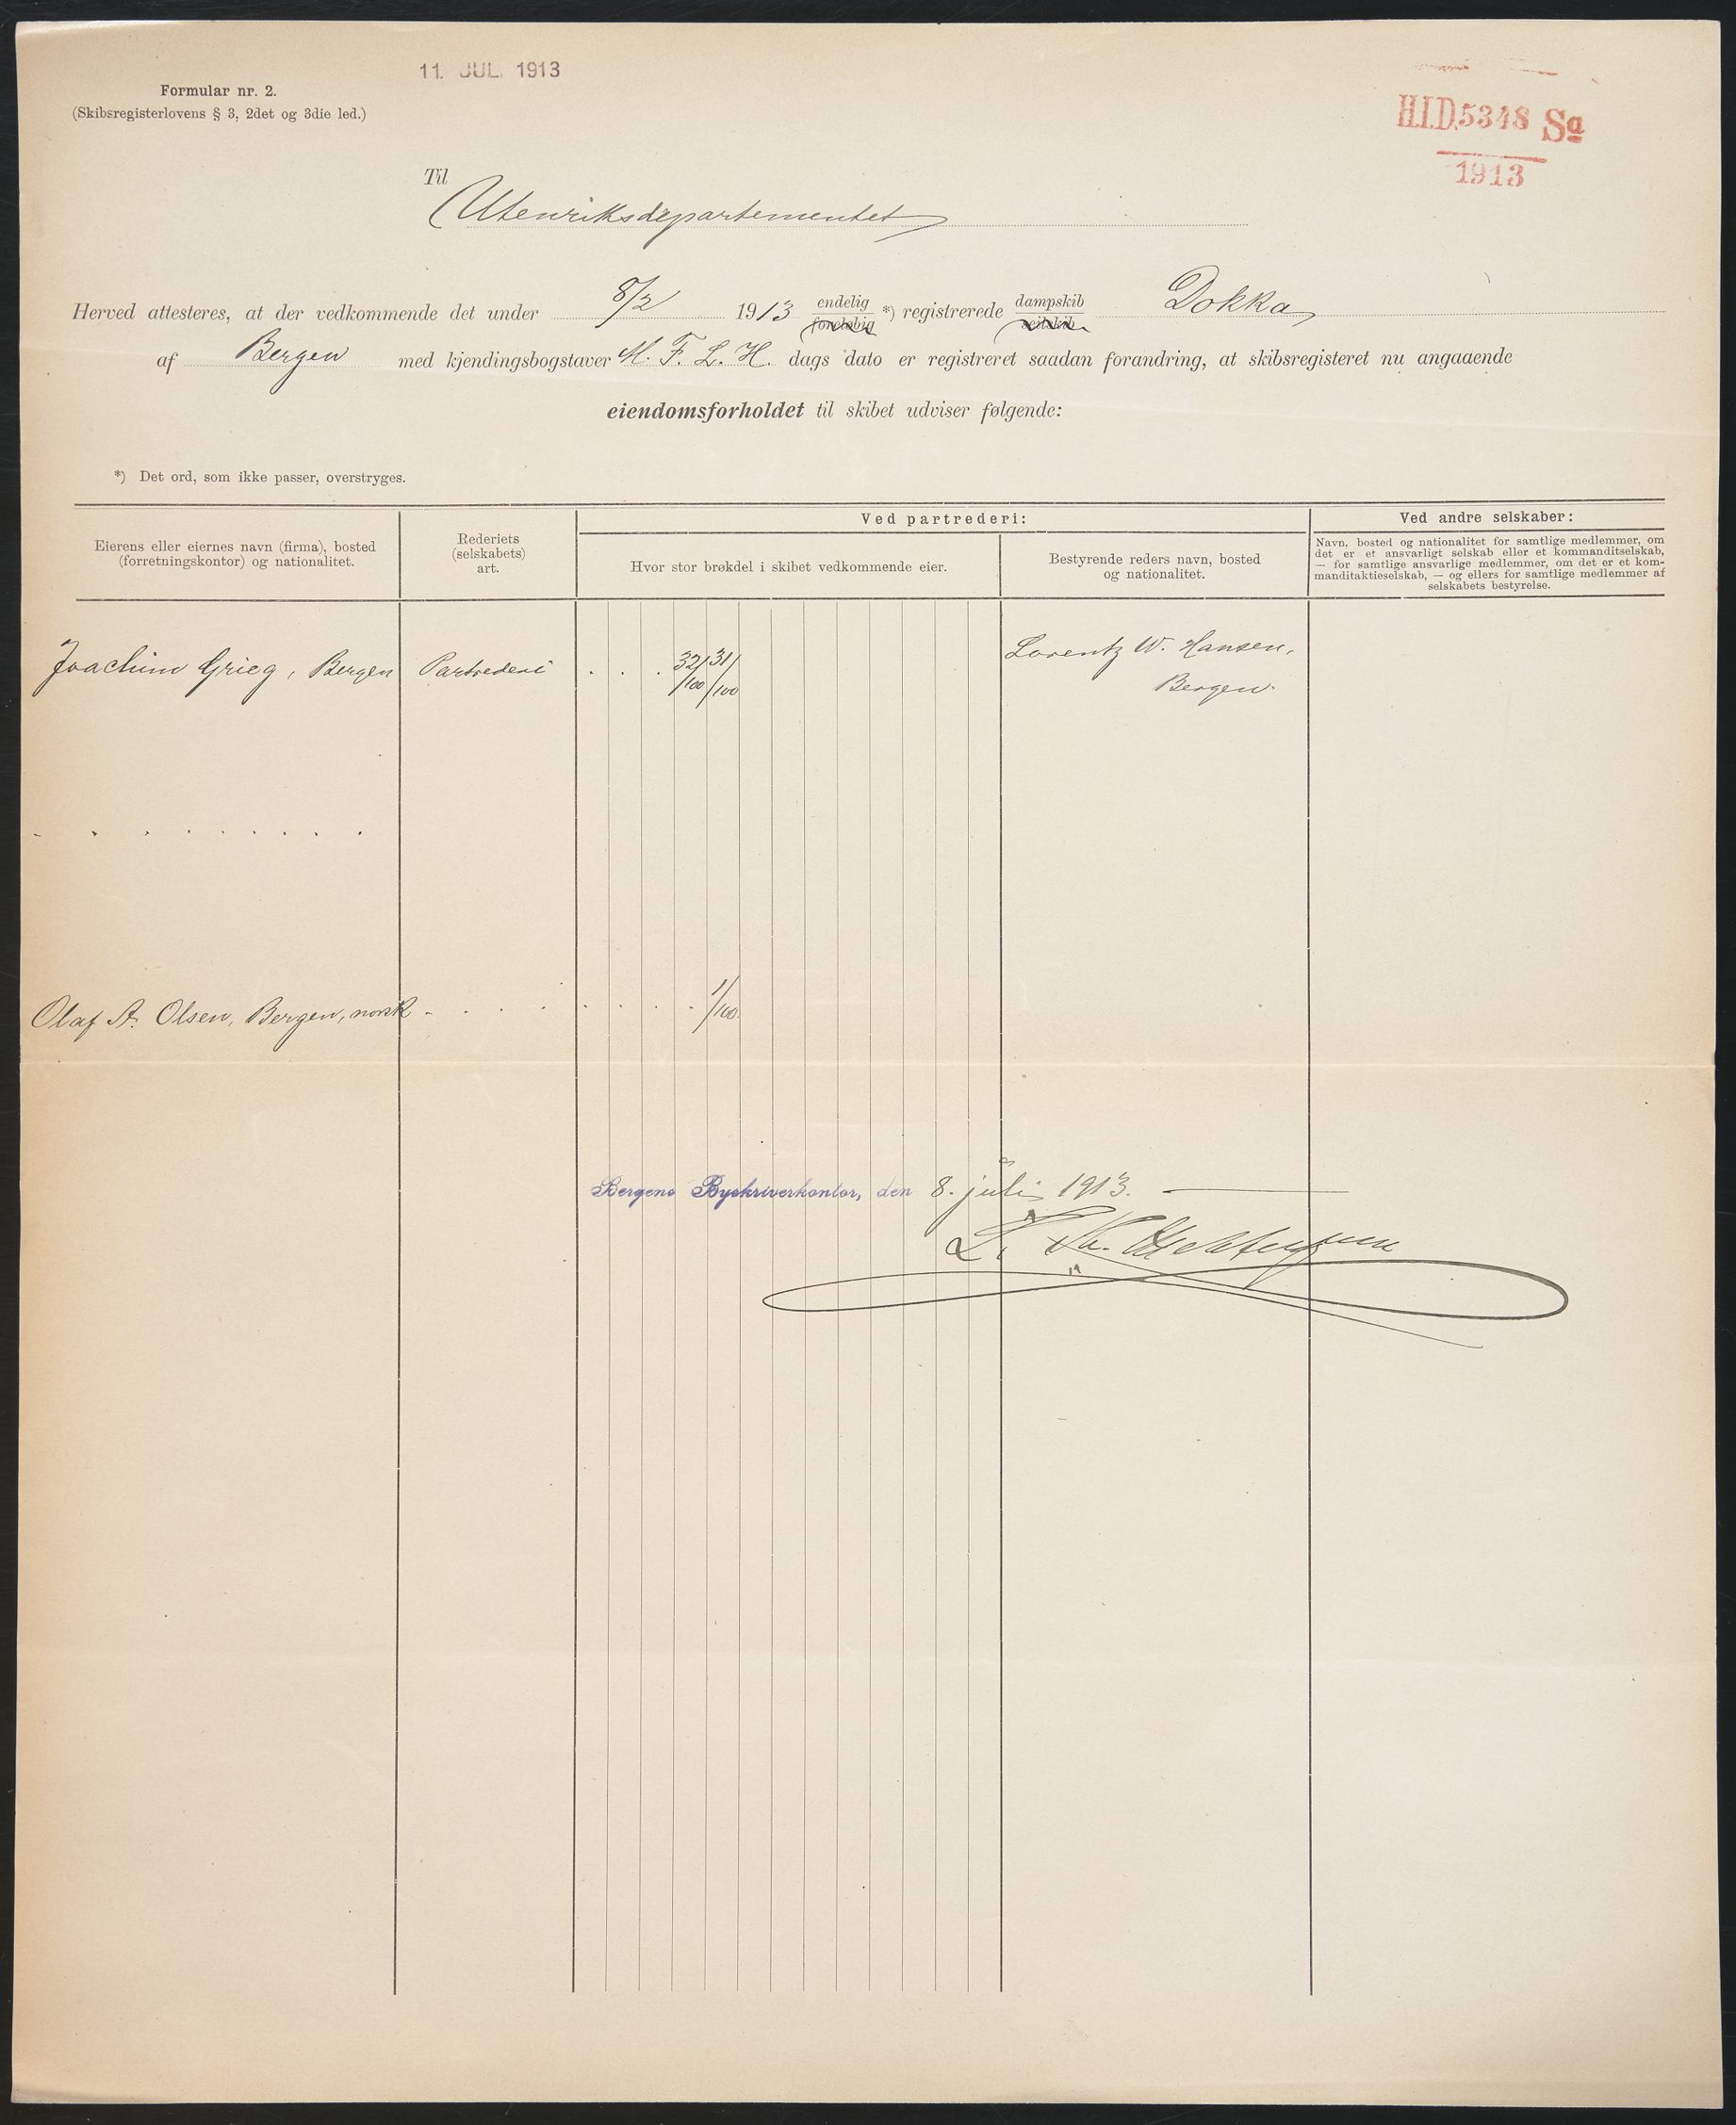 11. JUL. 1913
Formular nr. 2.
(Skibsregisterlovens § 3, 2det og 3die led.)
H.I.D. 5348 Sa
1913
Til
Utenriksdepartementet
Herved attesteres, at der vedkommende det under 8/2 1913 endelig foreløbig *) registrerede dampskib seilskib Dokka,
af Bergen med kjendingsbogstaver M. F. L. H. dags dato er registreret saadan forandring, at skibsregisteret nu angaaende
eiendomsforholdet til skibet udviser følgende:
*) Det ord, som ikke passer, overstryges.
Eierens eller eiernes navn (firma), bosted
(forretningskontor) og nationalitet.
Rederiets
(selskabets)
art.
Ved partrederi:
Hvor stor brøkdel i skibet vedkommende eier.
Bestyrende reders navn, bosted
og nationalitet.
Ved andre selskaber:
Navn, bosted og nationalitet for samtlige medlemmer, om
det er et ansvarligt selskab eller et kommanditselskab,
— for samtlige ansvarlige medlemmer, om det er et kom-
manditaktieselskab, — og ellers for samtlige medlemmer af
selskabets bestyrelse.
Joachim Grieg, Bergen Partrederi . . . 32/100 31/100 Lorentz W. Hansen,
Bergen.
Olaf A. Olsen, Bergen, norsk - . . . . . . . . 1/100.
Bergens Byskriverkontor, den 8. juli 1913.